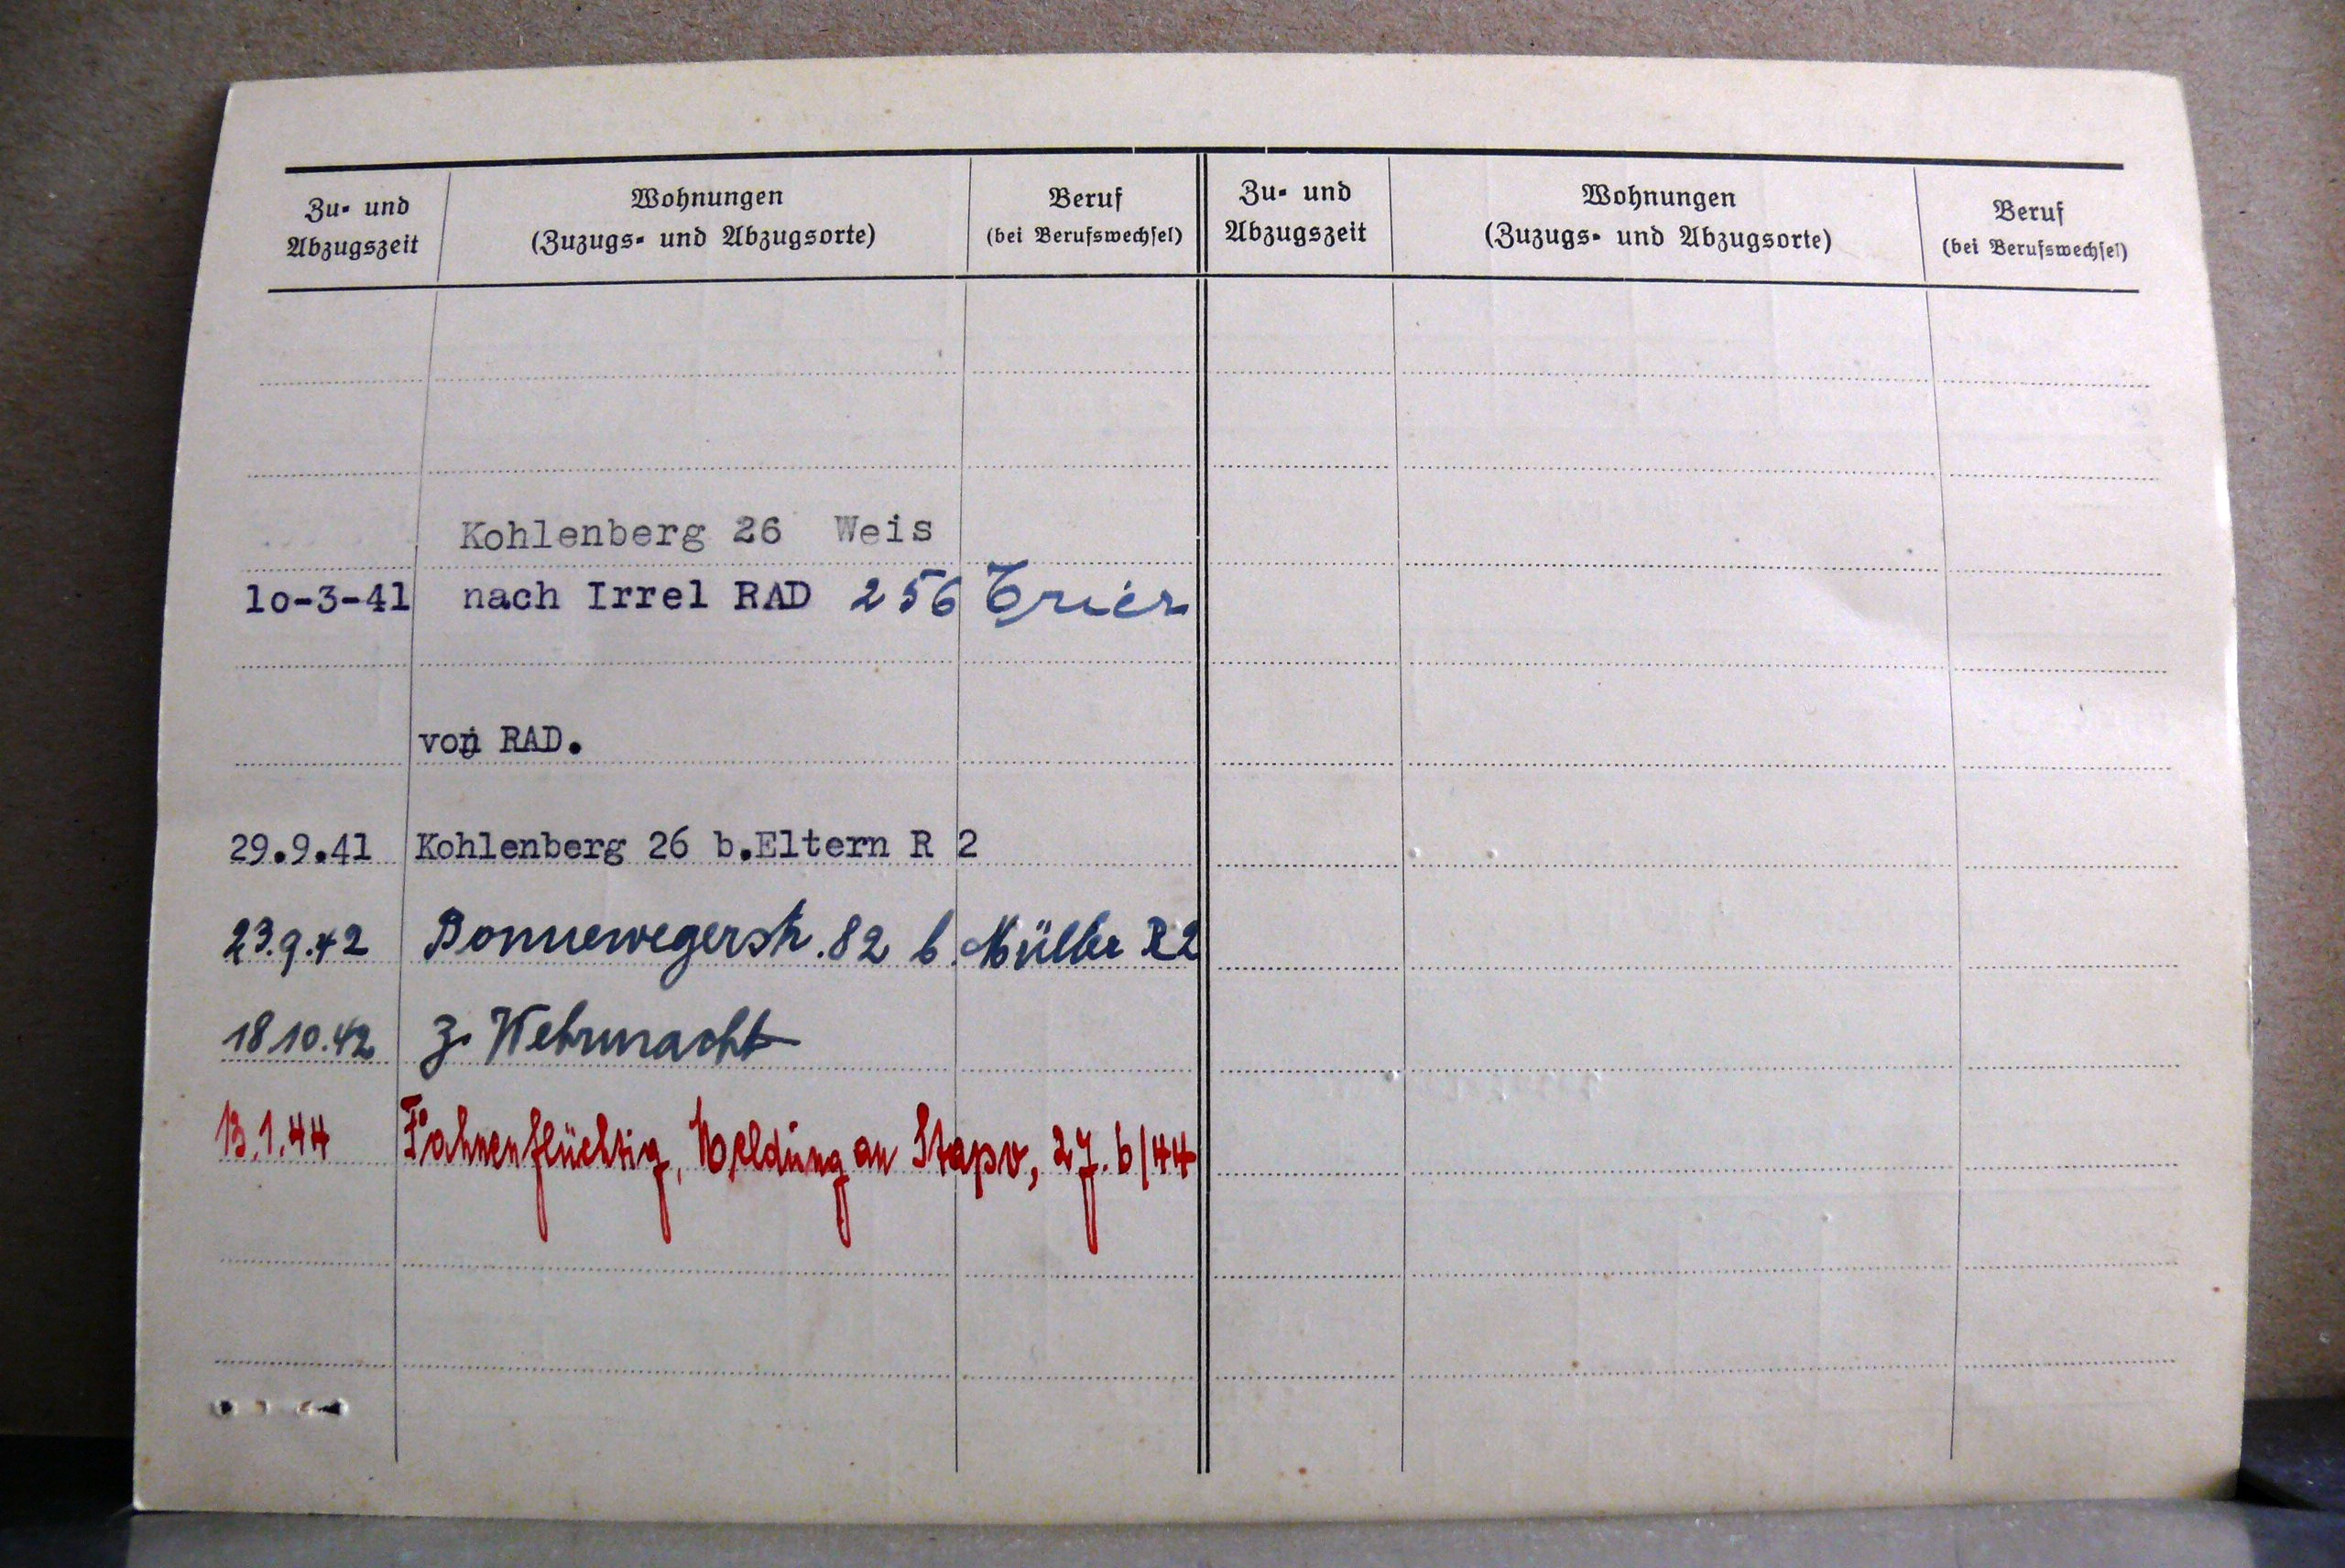 Zu- und
Abzugszeit
Wohnungen
(Zuzugs- und Abzugsorte)
Beruf
(bei Berufswechsel)
Zu- und
Abzugszeit
Wohnungen
(Zuzugs- und Abzugsorte)
Beruf
(bei Berufswechsel)
Kohlenberg 26 Weis
10-3-41 nach Irrel RAD 256 Trier
von RAD.
29.9.41 Kohlenberg 26 b.Eltern R 2
23.9.42 Bonnewegerstr. 82 b. Müller R2
18 10.42 z. Wehrmacht
13.1.44 Fahnenflüchtig, Meldung an Stapo, 27.6/44